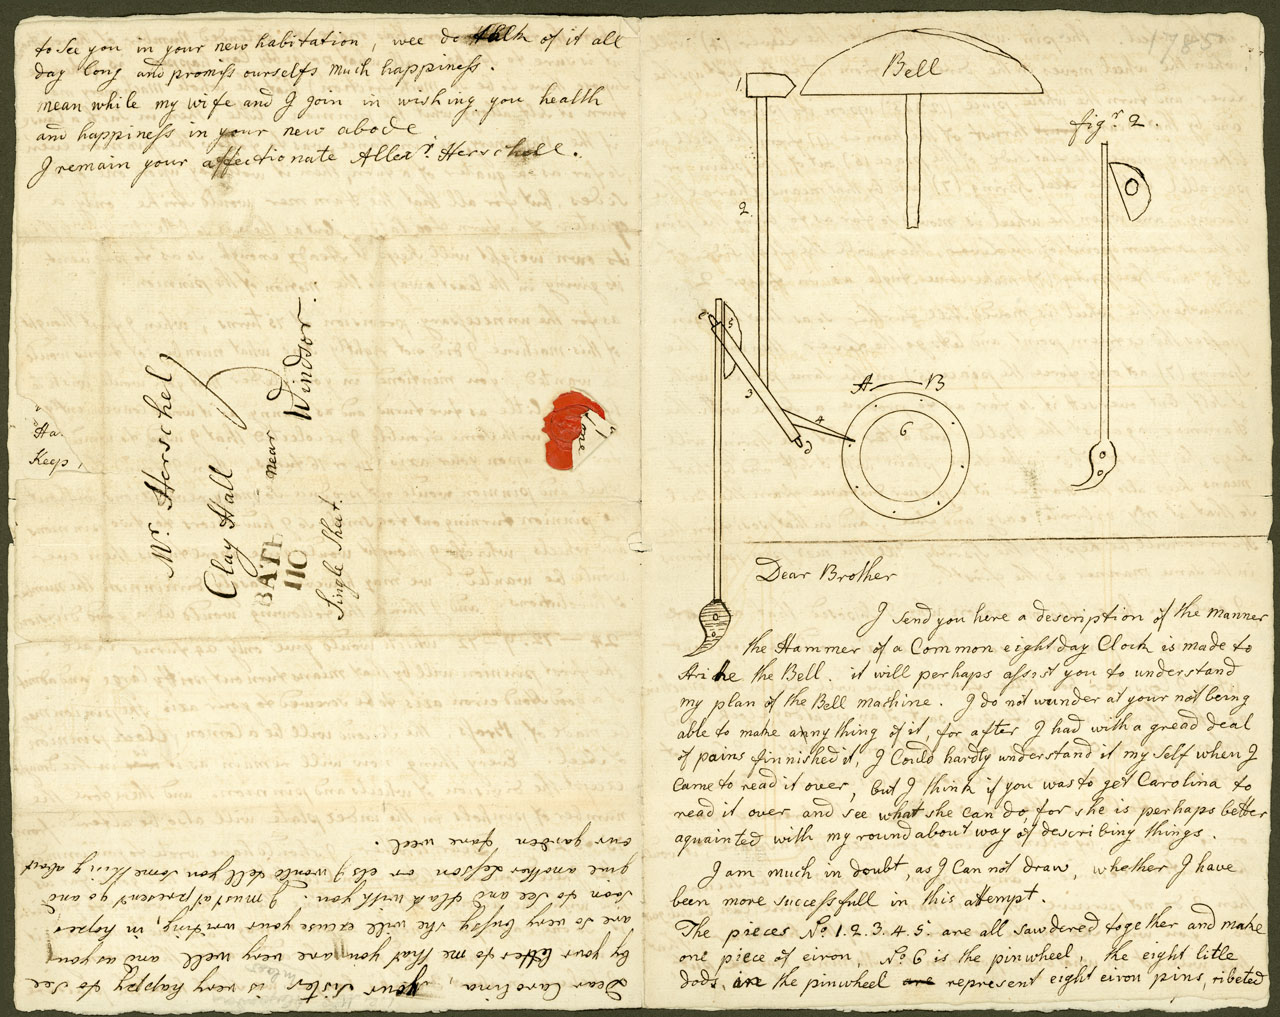 to see you in your new habitation, wee do talk of it all
day long and promiss ourselfs much happiness.
mean while my wife and I join in wishing you health
and happiness in your new abode.
I remain your affectionate Allexr. Herschell.
Ha.
Keep
Mr. Herschel
Clay Hall
near Windsor.
Single Sheet
BATH
110
Dear Carolina, your sister is very happy to see
by your letter to me that you are very well and as you
are so very bussy she will excuse your writing, in hopes
soon to see and talk with you. I must at present go and
give another lesson or els I would tell you something about
our garden fare well.
1785
Bell
1.
figr. 2.
2
5
3
A B
4
6
d
Dear Brother
I send you here a description of the manner
the Hammer of a Common eight day Clock is made to
strike the Bell. it will perhaps assist you to understand
my plan of the Bell machine. I do not wunder at your not being
able to make anny thing of it, for after I had with a gread deal
of pains finnished it, I Could hardly understand it my self when I
Came to read it over, but I think if you was to get Carolina to
read it over and see what she can do, for she is perhaps better
aquainted with my round about way of describing things.
I am much in doubt, as I Can not draw, whether I have
been more successfull in this attempt.
The pieces No. 1. 2. 3. 4. 5. are all sawdered together and make
one piece of eiron, No. 6 is the pinwheel, the eight litle
dods, in the pinwheel are represent eight eiron pins, ribeted